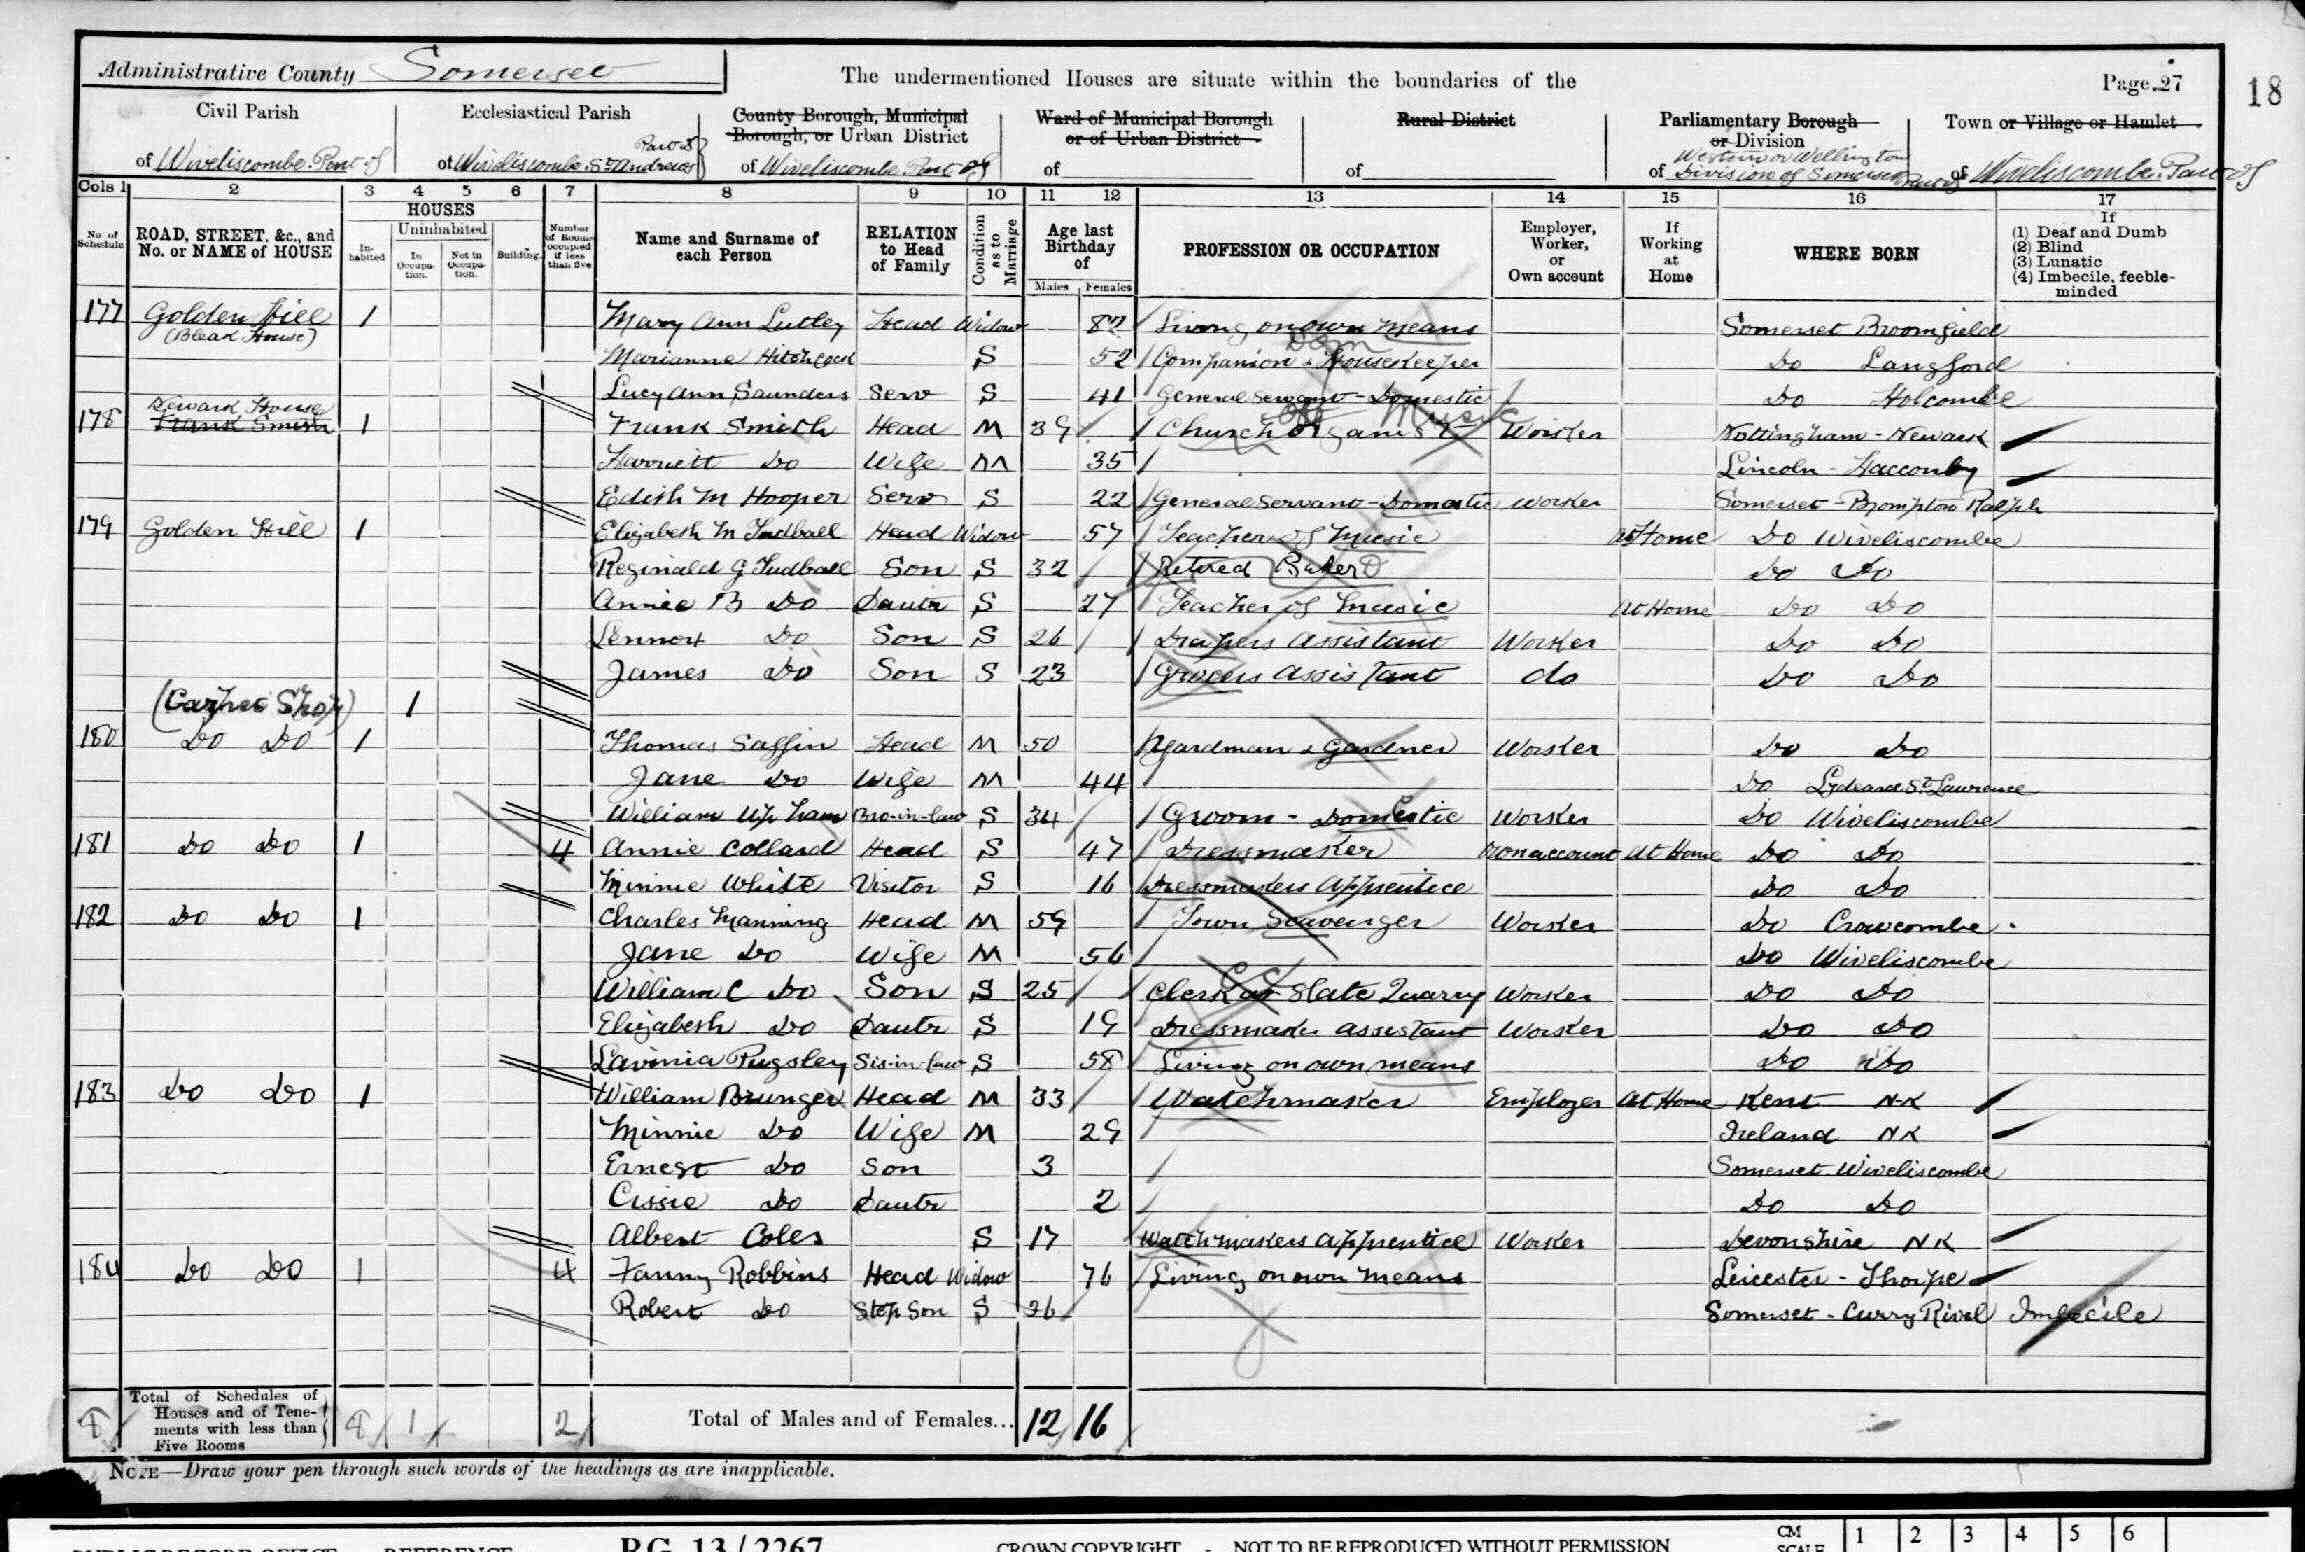 Administrative County Somerset
The undermentioned Houses are situate within the boundaries of the
Page 27
18
Civil Parish
of Wiveliscombe Part of
Ecclesiastical Parish
of Wiveliscombe St Andrews Part of
County Borough, Municipal Borough, or Urban District
of Wiveliscombe Part of
Ward of Municipal Borough or of Urban District
of
Rural District
of
Parliamentary Borough or Division
of Western or Wellington Division of Somerset Part of
Town or Village or Hamlet
of Wiveliscombe Part of
Cols 1 2 3 4 5 6 7 8 9 10 11 12 13 14 15 16 17
No. of Schedule
ROAD, STREET, &c., and No. or NAME of HOUSE
HOUSES
Inhabited
Uninhabited
In Occupation.
Not in Occupation.
Building
Number of Rooms occupied if less than five
Name and Surname of each Person
RELATION to Head of Family
Condition as to Marriage
Age last Birthday of
Males Females
PROFESSION OR OCCUPATION
Employer, Worker, or Own account
If Working at Home
WHERE BORN
If
(1) Deaf and Dumb
(2) Blind
(3) Lunatic
(4) Imbecile, feeble-minded
177 Golden Hill (Bleak House) 1 Mary Ann Lutley Head Widow 82 Living on own means Somerset Broomfield
Marianne Hitchcock S 52 Companion & Housekeeper Dom Do Langford
Lucy Ann Saunders Serv S 41 General Servant - Domestic Do Holcombe
178 Newark House Frank Smith 1 Frank Smith Head M 39 Church Organist Music Worker Nottingham - Newark
Harriett Do Wife M 35 Lincoln - Hacconby
Edith M Hooper Serv S 22 General Servant - Domestic Worker Somerset - Brompton Ralph
179 Golden Hill 1 Elizabeth M Tudball Head Widow 57 Teacher of Music At Home Do Wiveliscombe
Reginald G Tudball Son S 32 Retired Baker Do Do
Annie B Do Dautr S 27 Teacher of Music At Home Do Do
Lennox Do Son S 26 Drapers Assistant Worker Do Do
James Do Son S 23 Grocers Assistant do Do Do
(Carpet Shop) 1
180 Do Do 1 Thomas Saffin Head M 50 Yardman & Gardner Worker Do Do
Jane Do Wife M 44 Do Lydeard St Lawrence
William Upham Bro-in-law S 34 Groom - Domestic Worker Do Wiveliscombe
181 Do Do 1 4 Annie Collard Head S 47 Dressmaker Own account At Home Do Do
Minnie White Visitor S 16 Dressmakers Apprentice Do Do
182 Do Do 1 Charles Manning Head M 59 Town Scavenger Worker Do Crowcombe
Jane Do Wife M 56 Do Wiveliscombe
William C Do Son S 25 Clerk at Slate Quarry Worker Do Do
Elizabeth Do Dautr S 19 Dressmaker Assistant Worker Do Do
Lavinia Pugsley Sis-in-law S 58 Living on own means Do Do
183 Do Do 1 William Brunger Head M 33 Watchmaker Employer At Home Kent NK
Minnie Do Wife M 29 Ireland NK
Ernest Do Son 3 Somerset Wiveliscombe
Cissie Do Dautr 2 Do Do
Albert Coles S 17 Watchmakers Apprentice Worker Devonshire NK
184 Do Do 1 4 Fanny Robbins Head Widow 76 Living on own means Leicester - Thorpe
Robert Do Step Son S 36 Somerset - Curry Rivel Imbecile
8 Total of Schedules of Houses and of Tenements with less than Five Rooms 8 1 2 Total of Males and of Females... 12 16
NOTE—Draw your pen through such words of the headings as are inapplicable.
RG 13 / 2267
CROWN COPYRIGHT - NOT TO BE REPRODUCED WITHOUT PERMISSION
CM SCALE 1 2 3 4 5 6